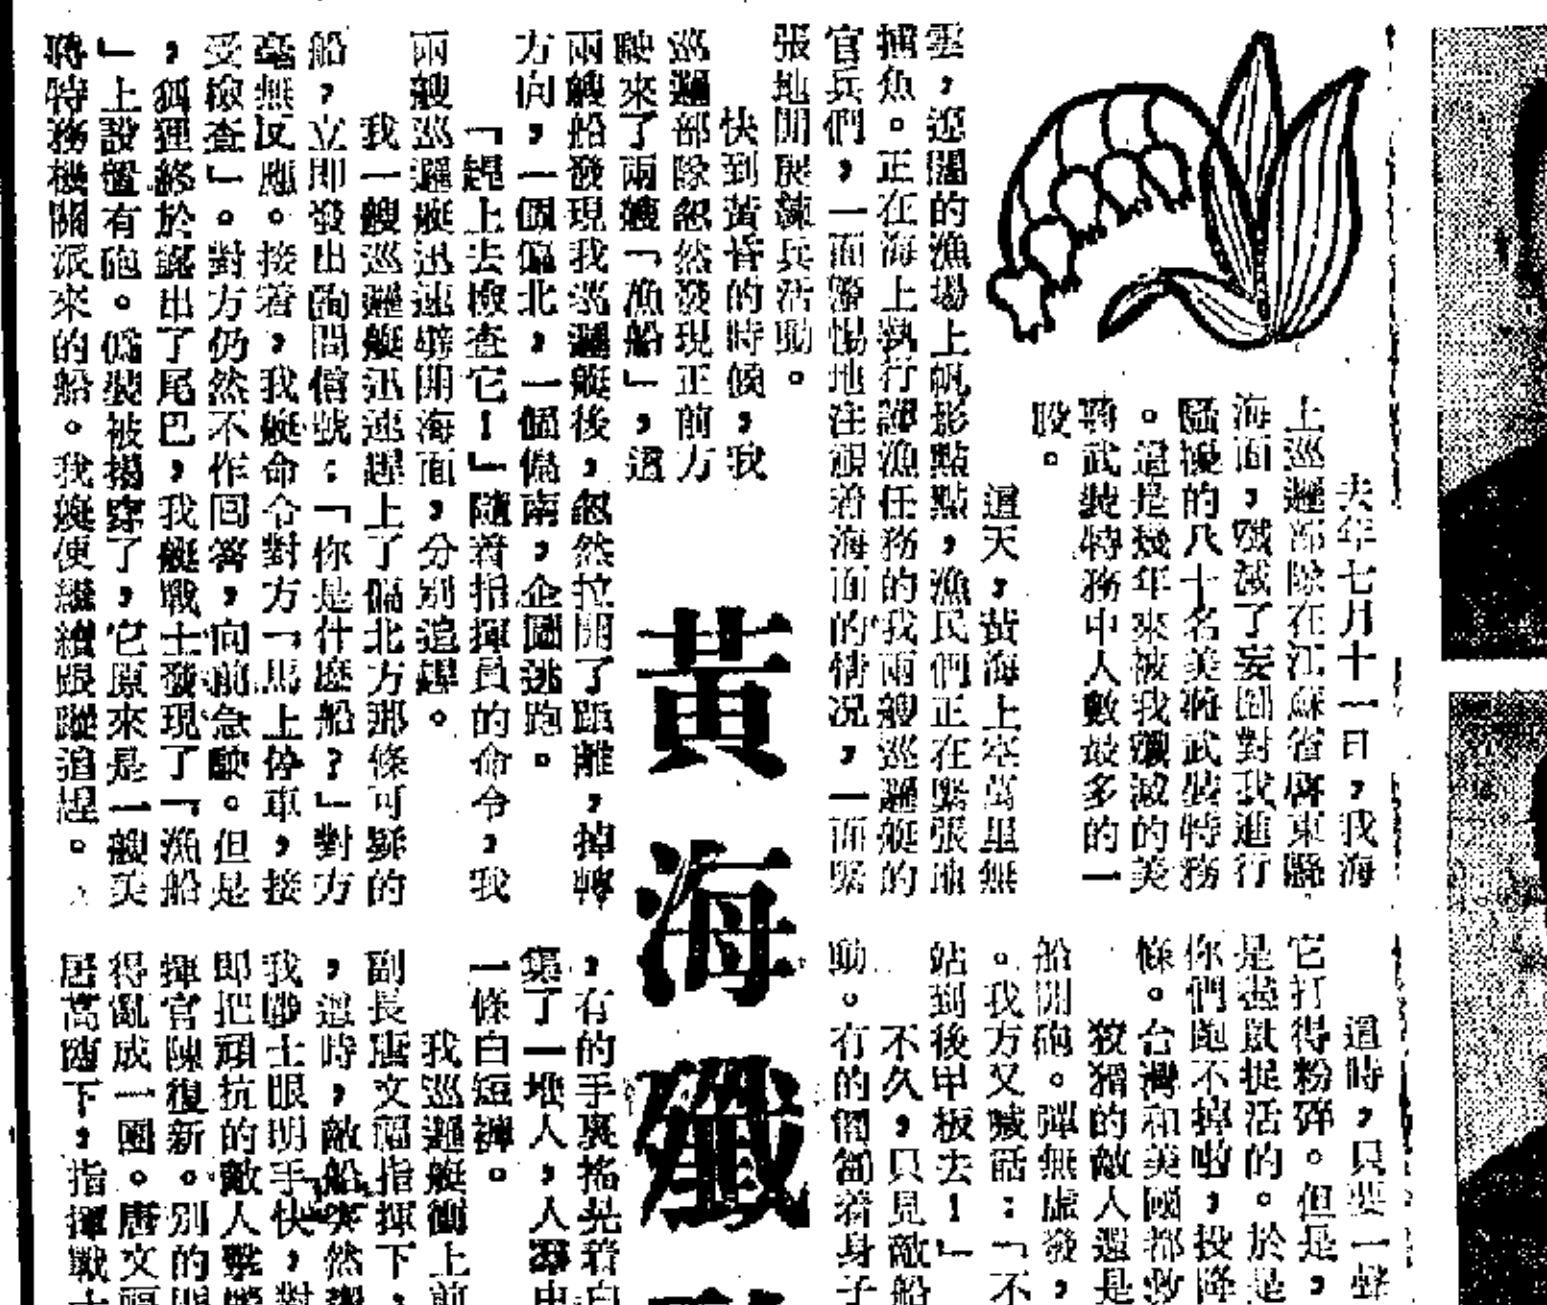 黃海殲
去年七月十一日，我海
上巡邏部隊在江蘇省啓東縣
海面，殲滅了妄圖對我進行
騷擾的八十名美蔣武裝特務
。這是幾年來被我殲滅的美
蔣武裝特務中人數最多的一
股。
這天，黃海上空萬里無
雲，遼闊的漁場上帆影點點，漁民們正在緊張地
捕魚。正在海上執行護漁任務的我兩艘巡邏艇的
官兵們，一面警惕地注視着海面的情況，一面緊
張地開展練兵活動。
快到黃昏的時候，我
巡邏部隊忽然發現正前方
駛來了兩艘「漁船」，這
兩艘船發現我巡邏艇後，忽然拉開了距離，掉轉
方向，一個偏北，一個偏南，企圖逃跑。
「趕上去檢查它！」隨着指揮員的命令，我
兩艘巡邏艇迅速劈開海面，分別追趕。
我一艘巡邏艇迅速趕上了偏北方那條可疑的
船，立即發出詢問信號：「你是什麼船？」對方
毫無反應。接着，我艇命令對方「馬上停車，接
受檢查」。對方仍然不作回答，向前急駛。但是
，狐狸終於露出了尾巴，我艇戰士發現了「漁船
」上設置有砲。僞裝被揭穿了，它原來是一艘美
蔣特務機關派來的船。我艇便繼續跟蹤追趕。
這時，只要一聲
它打得粉碎。但是，
是盡量捉活的。於是
你們跑不掉啦，投降
條。台灣和美國都救
狡猾的敵人還是
船開砲。彈無虛發，
。我方又喊話：「不
站到後甲板去！」
不久，只見敵船
動。有的僩着身子
，有的手裏搖晃着白
集了一堆人，人羣中
一條白短褲。
我巡邏艇衝上前
副長唐文福指揮下，
，這時，敵船突然
我戰士眼明手快，對
即把頑抗的敵人擊
揮官陳復新。別的
得亂成一團。唐文福
居高臨下，指揮戰士